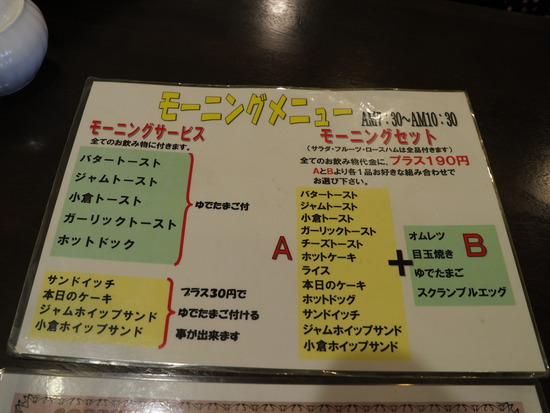 モーニングメニュー
AM7:30～AM10:30
モーニングサービス
全てのお飲み物に付きます。
バタートースト
ジャムトースト
小倉トースト
ガーリックトースト
ホットドック
ゆでたまご付
サンドイッチ
本日のケーキ
ジャムホイップサンド
小倉ホイップサンド
プラス30円で
ゆでたまご付ける
事が出来ます
モーニングセット
(サラダ・フルーツ・ロースハムは全品付きます)
全てのお飲み物代金に、プラス190円
AとBより各1品お好きな組み合わせで
お選び下さい。
A
バタートースト
ジャムトースト
小倉トースト
ガーリックトースト
チーズトースト
ホットケーキ
ライス
本日のケーキ
ホットドッグ
サンドイッチ
ジャムホイップサンド
小倉ホイップサンド
+
B
オムレツ
目玉焼き
ゆでたまご
スクランブルエッグ